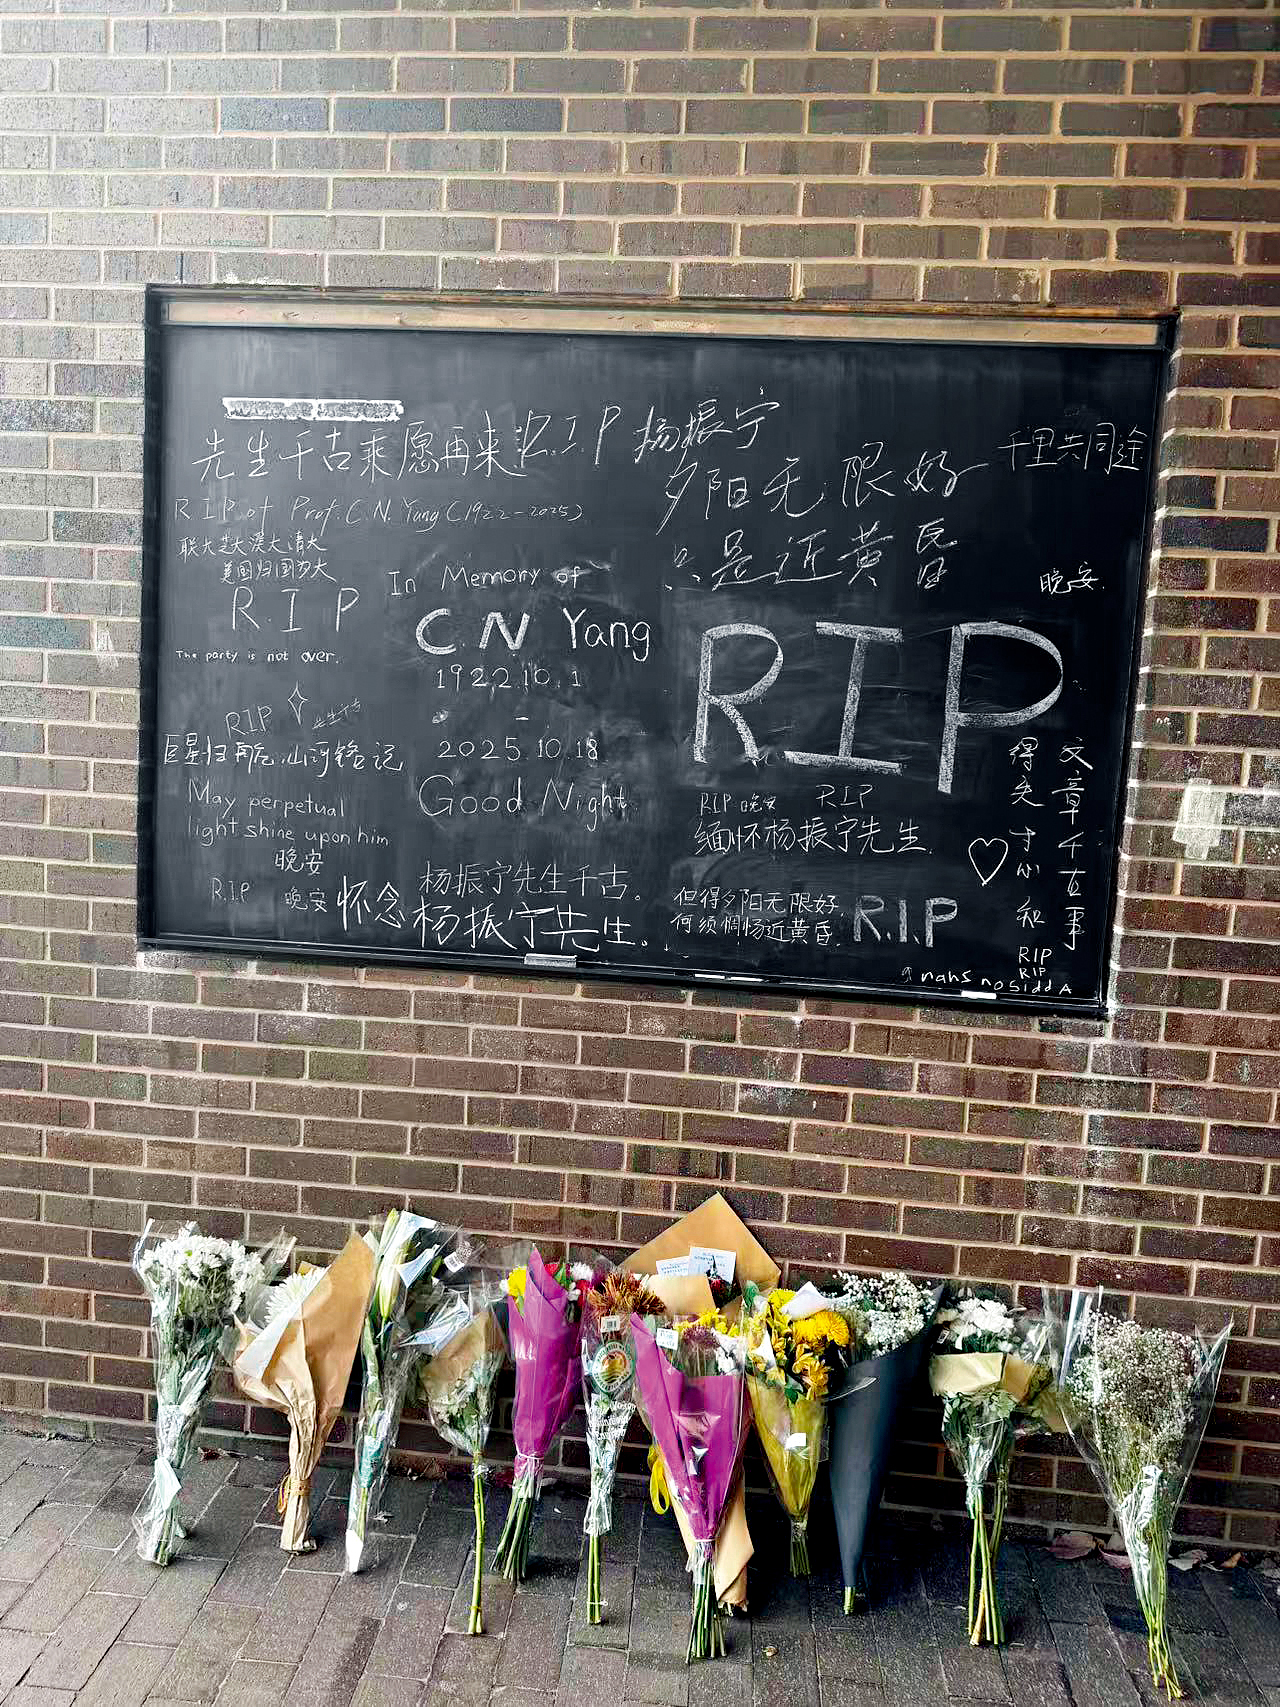 先生千古乘愿再来
R.I.P 杨振宁
千里共同途
夕阳无限好
只是近黄昏
晚安.
R.I.P of Prof. C.N. Yang (1922-2025)
联大芝大漠大清大
美国归国
R.I.P
The party is not over.
In Memory of
C.N Yang
1922.10.1
-
2025.10.18
Good Night
RIP
RIP
巨星归
山河铭记
May perpetual
light shine upon him
晚安
R.I.P
晚安
怀念杨振宁先生。
杨振宁先生千古。
RIP 晚安
RIP
缅怀杨振宁先生.
但得夕阳无限好,
何须惆怅近黄昏.
R.I.P
文章千古事
得失寸心知
RIP
RIP
nahs nosiddA